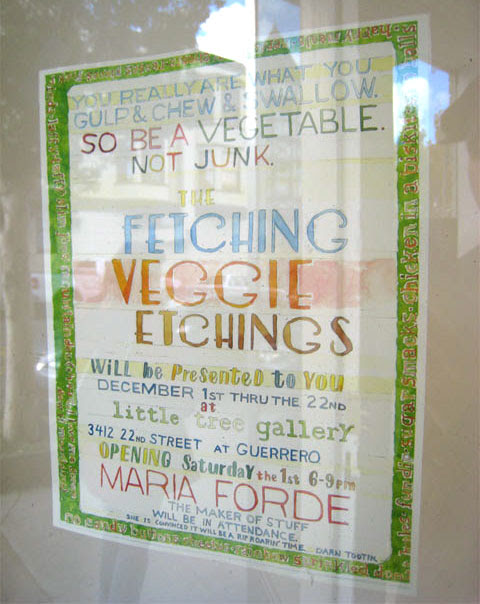 YOU REALLY ARE WHAT YOU
GULP & CHEW & SWALLOW.
SO BE A VEGETABLE.
NOT JUNK.
THE
FETCHING
VEGGIE
ETCHINGS
WiLL be PreSenteD to YoU
DECEMBER 1ST THRU THE 22ND
at
little tree gallery
3412 22ND STREET AT GUERRERO
OPENING SaturdaY the 1st 6-9pm
MARIA FORDE
THE MAKER OF STUFF
WILL BE IN ATTENDANCE.
SHE IS CONVINCED IT WILL BE A RIP ROARIN' TIME. DARN TOOTIN.
sugar smacks · chicken in a biskit